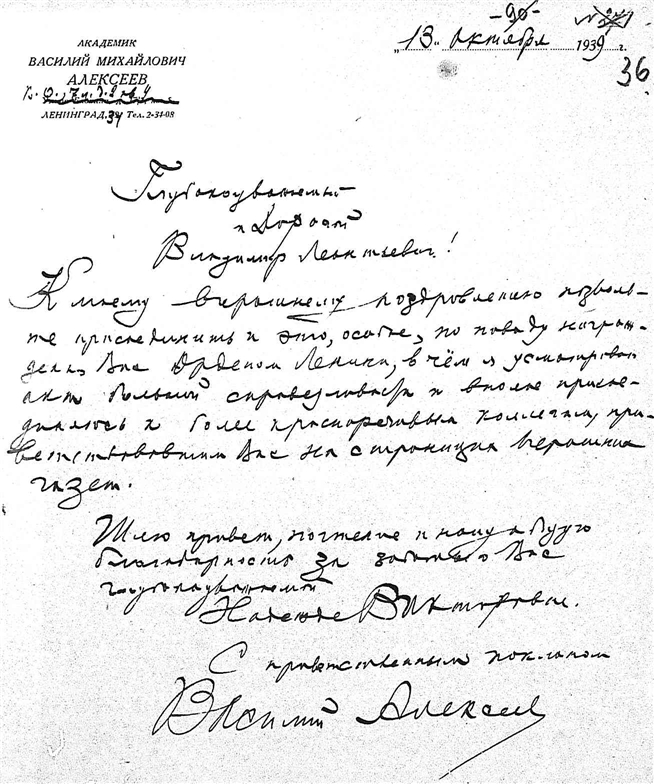 -90-
„13“ октября 1939 г.
36
АКАДЕМИК
ВАСИЛИЙ МИХАЙЛОВИЧ
АЛЕКСЕЕВ
ЛЕНИНГРАД, 34 Тел. 2-34-08
Глубокоуважаемый
и дорогой
Владимир Леонтьевич!
К моему вчерашнему поздравлению позволь-
те присоединить и это, особое, по поводу награж-
дения Вас Орденом Ленина, в чём я усматриваю
акт большой справедливости и вполне присое-
диняюсь к более красноречивым коллегам, при-
ветствовавшим Вас на страницах вчерашних
газет.
Шлю привет, почтение и нашу общую
благодарность за заботы о Вас
глубокоуважаемой
Надежде Викторовне.
С приветственным поклоном
Василий Алексеев